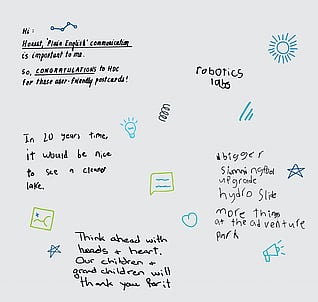 Hi:
Honest, 'Plain English' communication
is important to me.
So, CONGRATULATIONS to HDC
for these user-friendly postcards!
robotics
labs
In 20 years time,
it would be nice
to see a cleaner
lake.
bigger
upgrade
hydro slide
more things
at the adventure
park
Think ahead with
heads + heart.
Our children +
grand children will
thank you for it